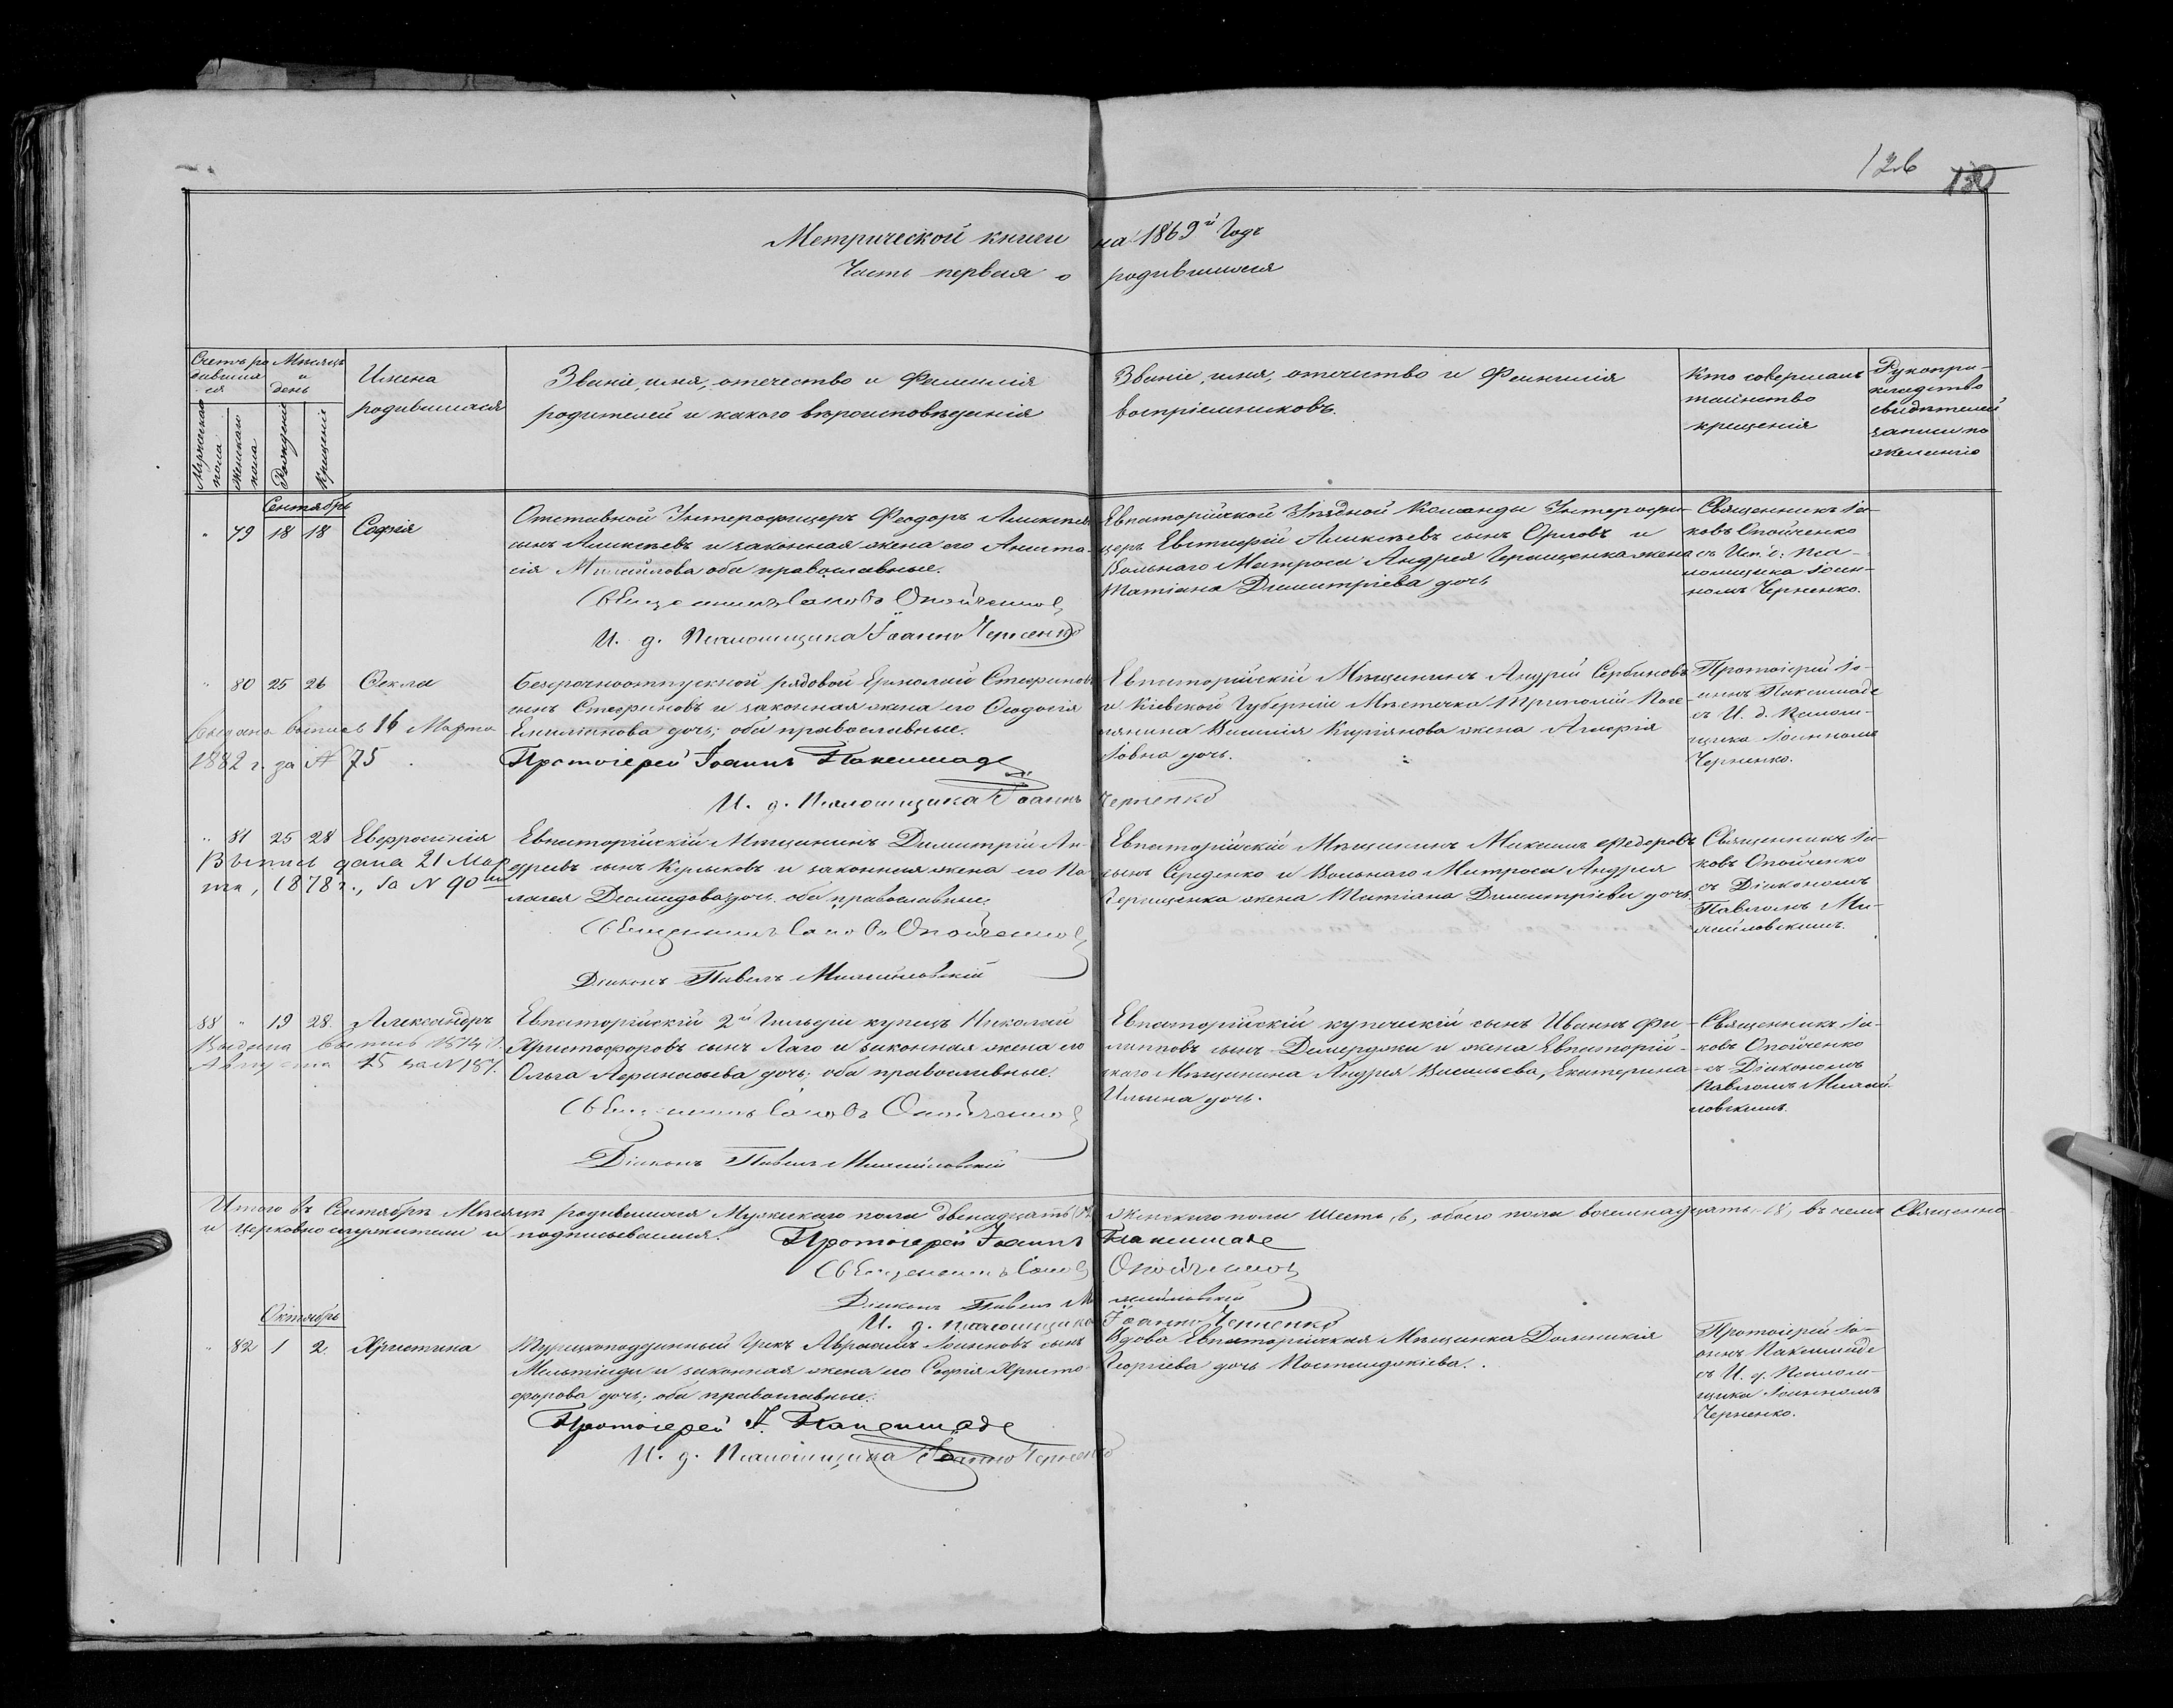 126 130
Метрической книги на 1869й Годъ
Часть первая о родившихся
Счетъ родившихся
Мужескаго пола
Женскаго пола
Мѣсяцъ и день
Рожденіе
Крещеніе
Имена
родившихся
Званіе, имя, отечество и Фамилія
родителей и какого вѣроисповѣданія
Званіе, имя, отечество и Фамилія
воспріемниковъ.
Кто совершалъ
таинство
крещенія
Рукопри-
кладство
свидѣтелей
записи по
желанію
Сентябрь
" 79 18 18 Софія
Отставной Унтерофицеръ Феодоръ Алексѣевъ
сынъ Алексѣевъ и законная жена его Анаста-
сія Михайлова оба православные.
Священникъ Іаковъ Опойченко
И. д. Псаломщика Іоаннъ Черненко
Евпаторійской Уѣздной Команды Унтерофи-
церъ Евстафій Алексѣевъ сынъ Орловъ и
Вольнаго Матроса Андрея Геращенка жена
Татіана Димитріева дочь
Священникъ Іа-
ковъ Опойченко
съ Исп. д. Пса-
ломщика Іоан-
номъ Черненко.
" 80 25 26 Ѳекла
Выдана выпись 16 Марта
1882 г. за № 75
Безсрочноотпускной рядовой Ермолай Стефановъ
сынъ Стефановъ и законная жена его Ѳеодосія
Емиліянова дочь; оба православные.
Протоіерей Іоаннъ Пакашмаде
И. д. Псаломщика Іоаннъ Черненко
Евпаторійскій Мѣщанинъ Андрей Сербиновъ
и Кіевской Губерніи Мѣстечка Триполій Посе-
лянина Василія Киріянова жена Агафія
Іовна дочь.
Протоіерей Іо-
аннъ Пакашмаде
съ И. д. Псалом-
щика Іоанномъ
Черненко.
" 81 25 28 Евфросинія
Выпись дана 21 Мар-
та, 1878 г., за № 90
Евпаторійскій Мѣщанинъ Димитрій Ан-
дреевъ сынъ Курысковъ и законная жена его Па-
лагея Деомидова дочь. оба православные.
Священникъ Іаковъ Опойченко
Діаконъ Павелъ Михайловскій
Евпаторійскій Мѣщанинъ Михаилъ Федоровъ
сынъ Середенко и Вольнаго Матроса Андрея
Геращенка жена Татіана Димитріева дочь.
Священникъ Іа-
ковъ Опойченко
съ Діакономъ
Павломъ Ми-
хайловскимъ.
88 " 19 28 Александръ
Выдана выпись 187 г.
Августа 15 за № 187.
Евпаторійскій 2й Гильдіи купецъ Николай
Христофоровъ сынъ Лаго и законная жена его
Ольга Афанасьева дочь; оба православные.
Священникъ Іаковъ Опойченко
Діаконъ Павелъ Михайловскій
Евпаторійскій купеческій сынъ Иванъ Фи-
липповъ сынъ Демерджи и жена Евпаторій-
скаго Мѣщанина Андрея Васильева, Екатерина
Ильина дочь.
Священникъ Іа-
ковъ Опойченко
съ Діакономъ
Павломъ Михай-
ловскимъ.
Итого въ Сентябрѣ Мѣсяцѣ родившихся Мужескаго пола двенадцать 12, Женскаго пола шесть 6, обоего пола восемнадцать 18, въ чемъ Священно
и Церковнослужители и подписываемся. Протоіерей Іоаннъ Пакашмаде
Священникъ Іаковъ Опойченко
Діаконъ Павелъ Михайловскій
И. д. Псаломщика Іоаннъ Черненко
Октябрь
" 82 1 2 Христина
Турецкоподданный Грекъ Авраамъ Іоанновъ сынъ
Мильтіади и законная жена его Софія Христо-
форова дочь; оба православные.
Протоіерей І. Пакашмаде
И. д. Псаломщика Іоаннъ Черненко
Вдова Евпаторійская Мѣщанка Домникія
Георгіева дочь Постанджіева.
Протоіерей Іо-
аннъ Пакашмаде
съ И. д. Псалом-
щика Іоанномъ
Черненко.